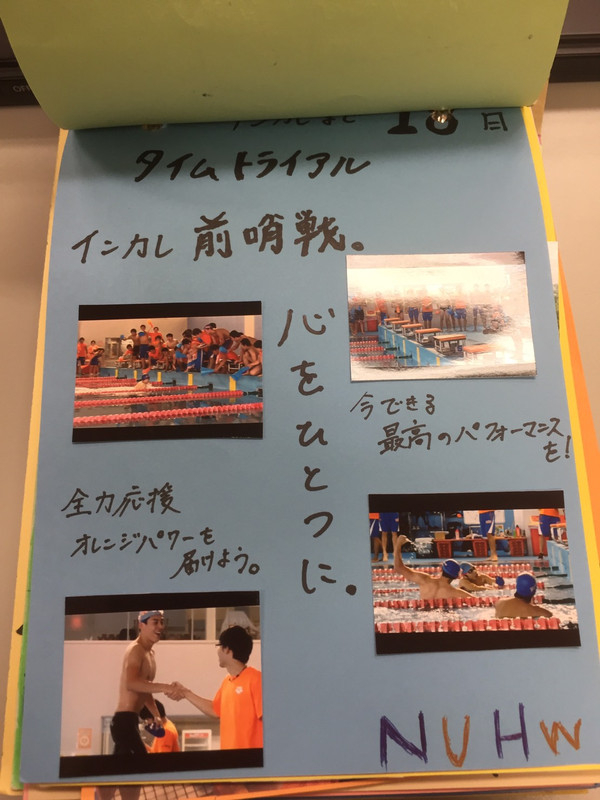 インカレまで 18日
タイムトライアル
インカレ 前哨戦。
心をひとつに。
今できる
最高のパフォーマンス
を!
全力応援
オレンジパワーを
届けよう。
NUHW